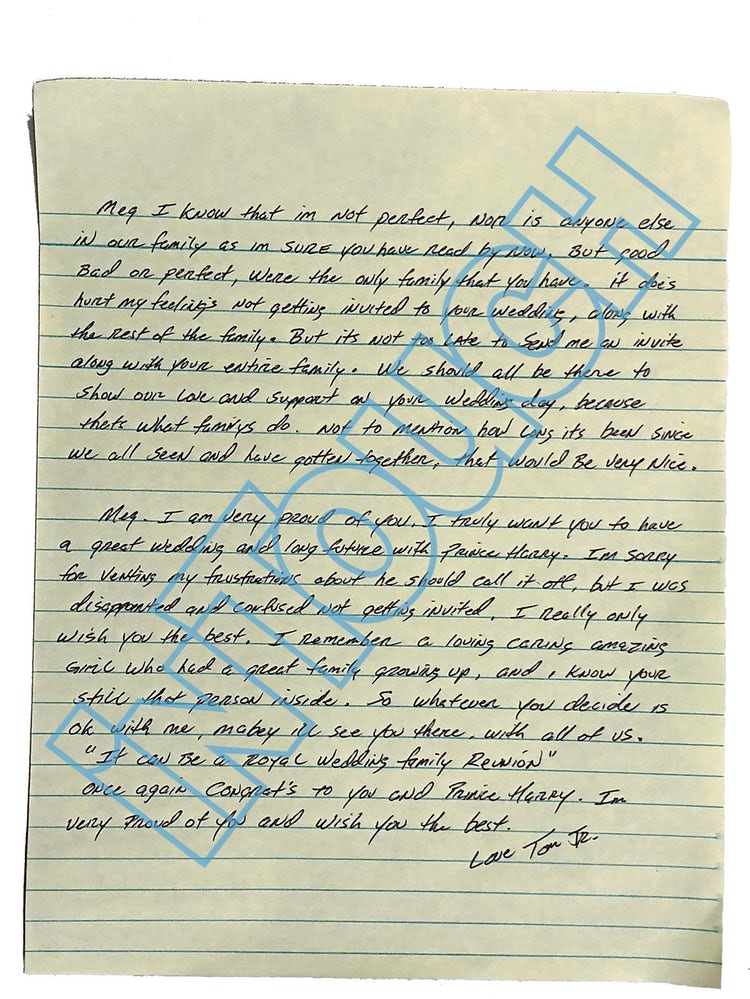 Meg I know that im not perfect, nor is anyone else
in our family as im sure you have read by now. But good
Bad or perfect, were the only family that you have. it does
hurt my feeling's not getting invited to your wedding, along with
the rest of the family. But its not too late to send me an invite
along with your entire family. We should all be there to
show our love and support on your wedding day, because
thats what familys do. not to mention how long its been since
we all seen and have gotten together, that would be very nice.
Meg. I am very proud of you. I truly want you to have
a great wedding and long future with Prince Harry. Im sorry
for venting my frustrations about he should call it off, but I was
disappointed and confused not getting invited. I really only
wish you the best. I remember a loving caring amazing
girl who had a great family growing up, and i know your
still that person inside. So whatever you decide is
ok with me, mabey ill see you there, with all of us.
"It can be a royal wedding family reunion"
once again Congrat's to you and Prince Harry. Im
very proud of you and wish you the best.
Love Tom Jr.
INTOUCH